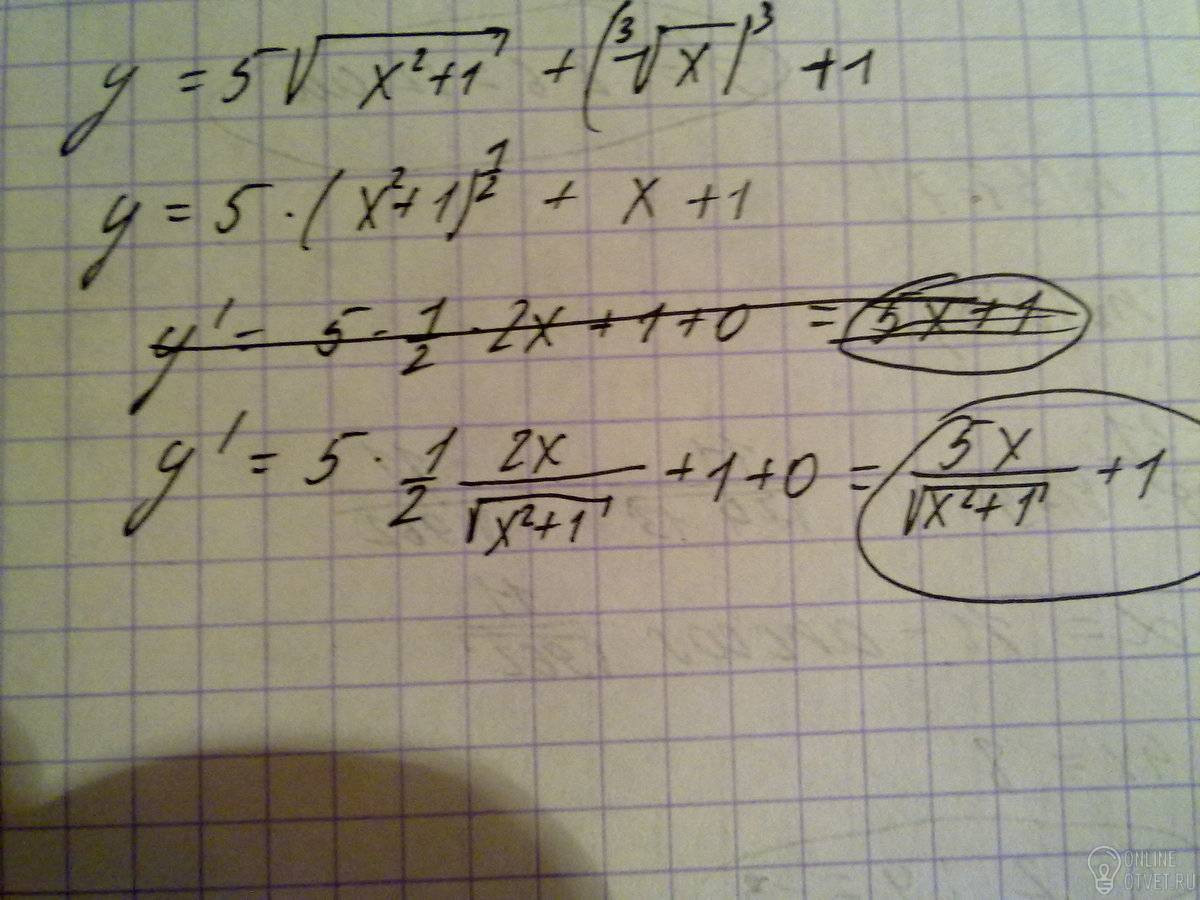 y = 5√(x²+1) + (³√x)³ + 1
y = 5 · (x²+1)^(1/2) + x + 1
y' = 5 · 1/2 · 2x + 1 + 0 = 5x + 1
y' = 5 · 1/2 2x/√(x²+1) + 1 + 0 = 5x/√(x²+1) + 1
ONLINE
OTVET.RU